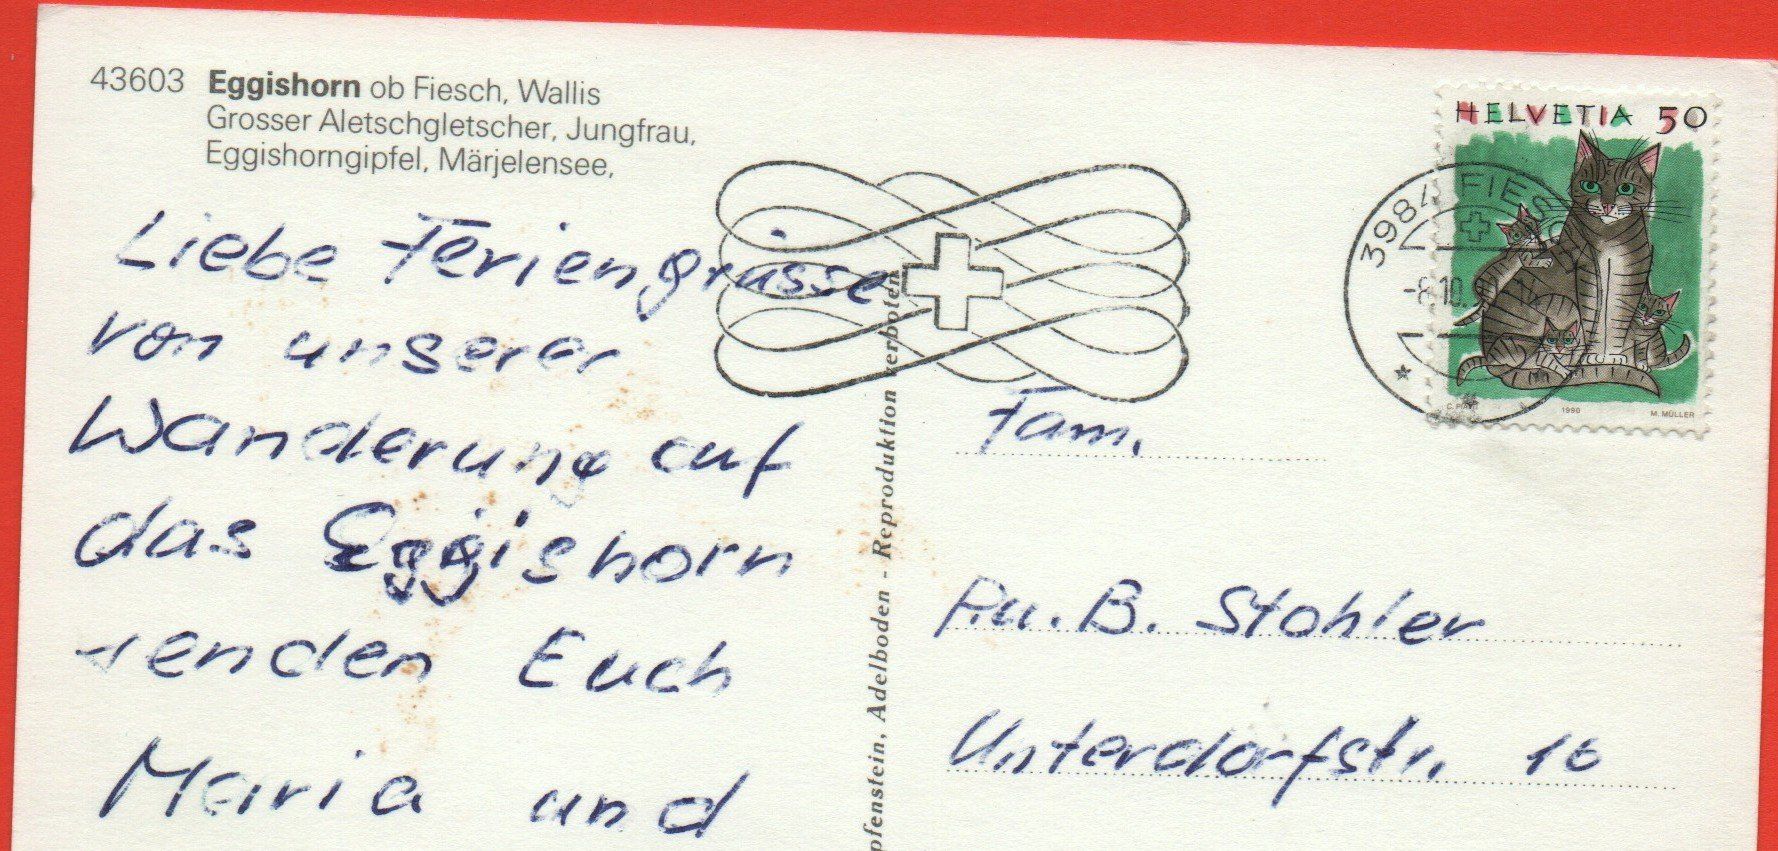 43603 Eggishorn ob Fiesch, Wallis
Grosser Aletschgletscher, Jungfrau,
Eggishorngipfel, Märjelensee,
Liebe Feriengrüsse
von unserer
Wanderung auf
das Eggishorn
senden Euch
Maria und
pfenstein, Adelboden - Reproduktion verboten
HELVETIA 50
3984 FIESCH
-8.10.
1990
M. MÜLLER
Fam.
B. Stohler
Unterdorfstr. 16